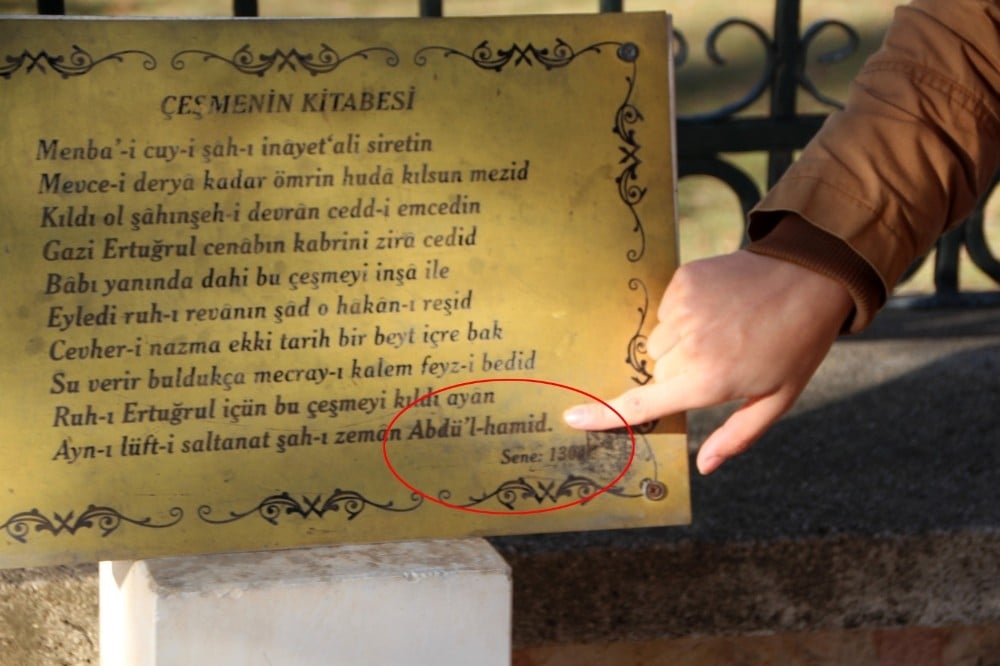 ÇEŞMENİN KİTABESİ
Menba'-i cuy-i şâh-ı inâyet‘ali siretin
Mevce-i deryâ kadar ömrin hudâ kılsun mezid
Kıldı ol şâhınşeh-i devrân cedd-i emcedin
Gazi Ertuğrul cenâbın kabrini zirâ cedid
Bâbı yanında dahi bu çeşmeyi inşâ ile
Eyledi ruh-ı revânın şâd o hâkân-ı reşid
Cevher-i nazma ekki tarih bir beyt içre bak
Su verir buldukça mecray-ı kalem feyz-i bedid
Ruh-ı Ertuğrul içün bu çeşmeyi kıldı ayân
Ayn-ı lüft-i saltanat şah-ı zeman Abdü'l-hamid.
Sene: